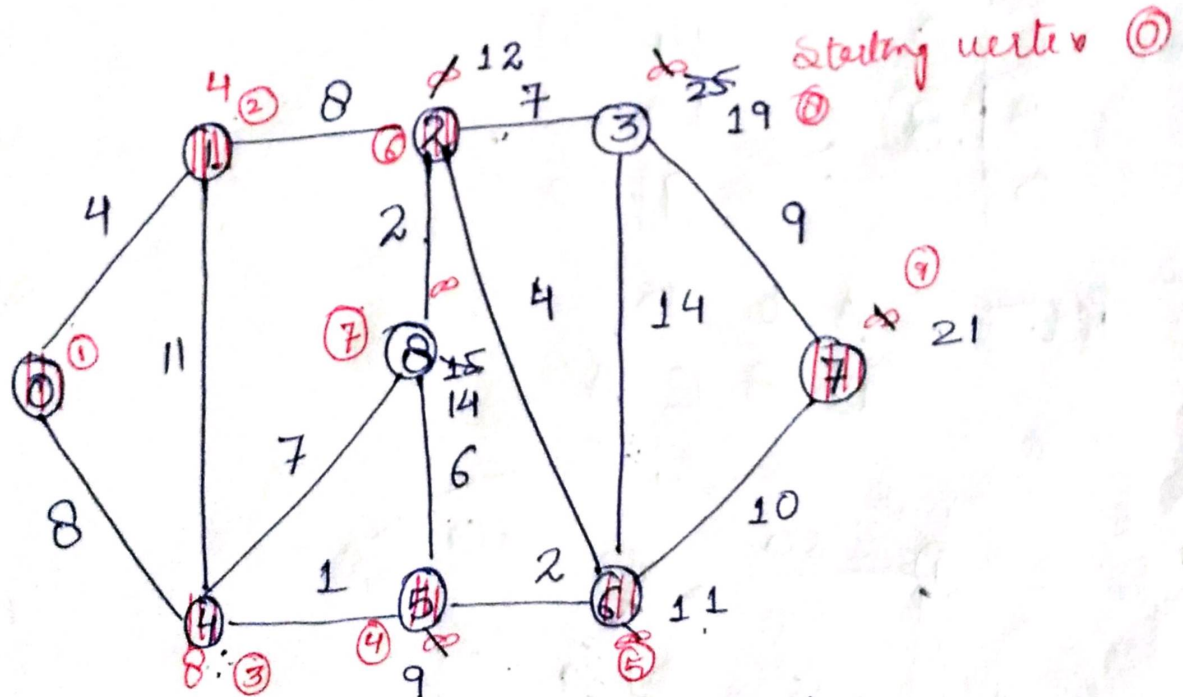 ∞ 12
∞ 25
Starting vertex 0
4 2
8
7
19 8
1
6
2
3
4
2
9
∞
4
9
14
∞ 21
7
8
15
14
1
0
11
7
7
6
8
10
1
2
4
5
6
11
8 3
4
∞
9
∞
5